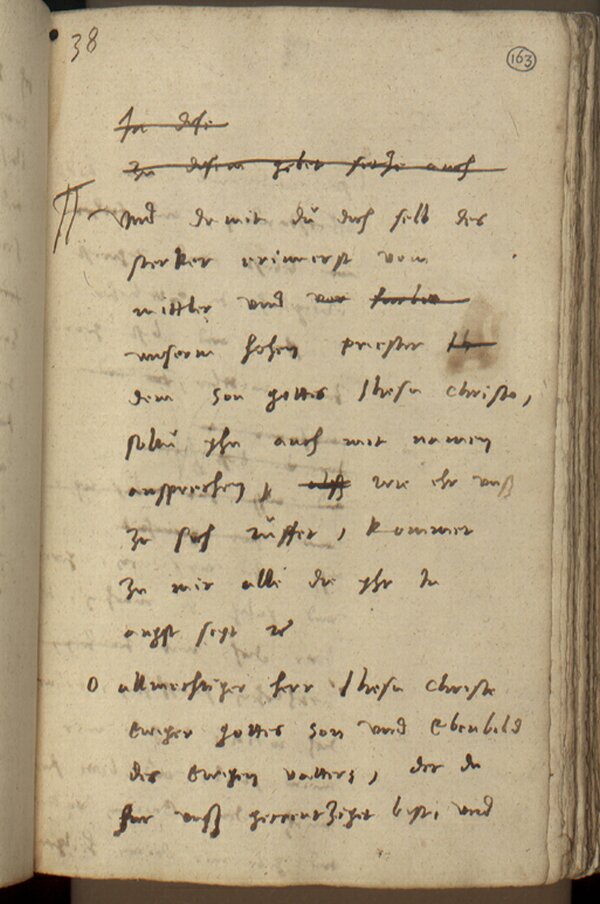 38
163
In dise
Zu disem gebet setze auch
Und damit du dich selb des
sterker erinnerst vom
mittler und vor
unserm hohen priester
dem son gottes Jhesu Christo,
soltu yhn auch mit namen
ansprechen, wie ehr unß
zu sich ruffet, kommet
zu mir alle die yhr in
angst seyt rc
O allmechtiger herr Jhesu Christe
Ewiger gottes son und Ebenbild
des Ewigen vatters, der du
fur unß gecreutziget bist, und